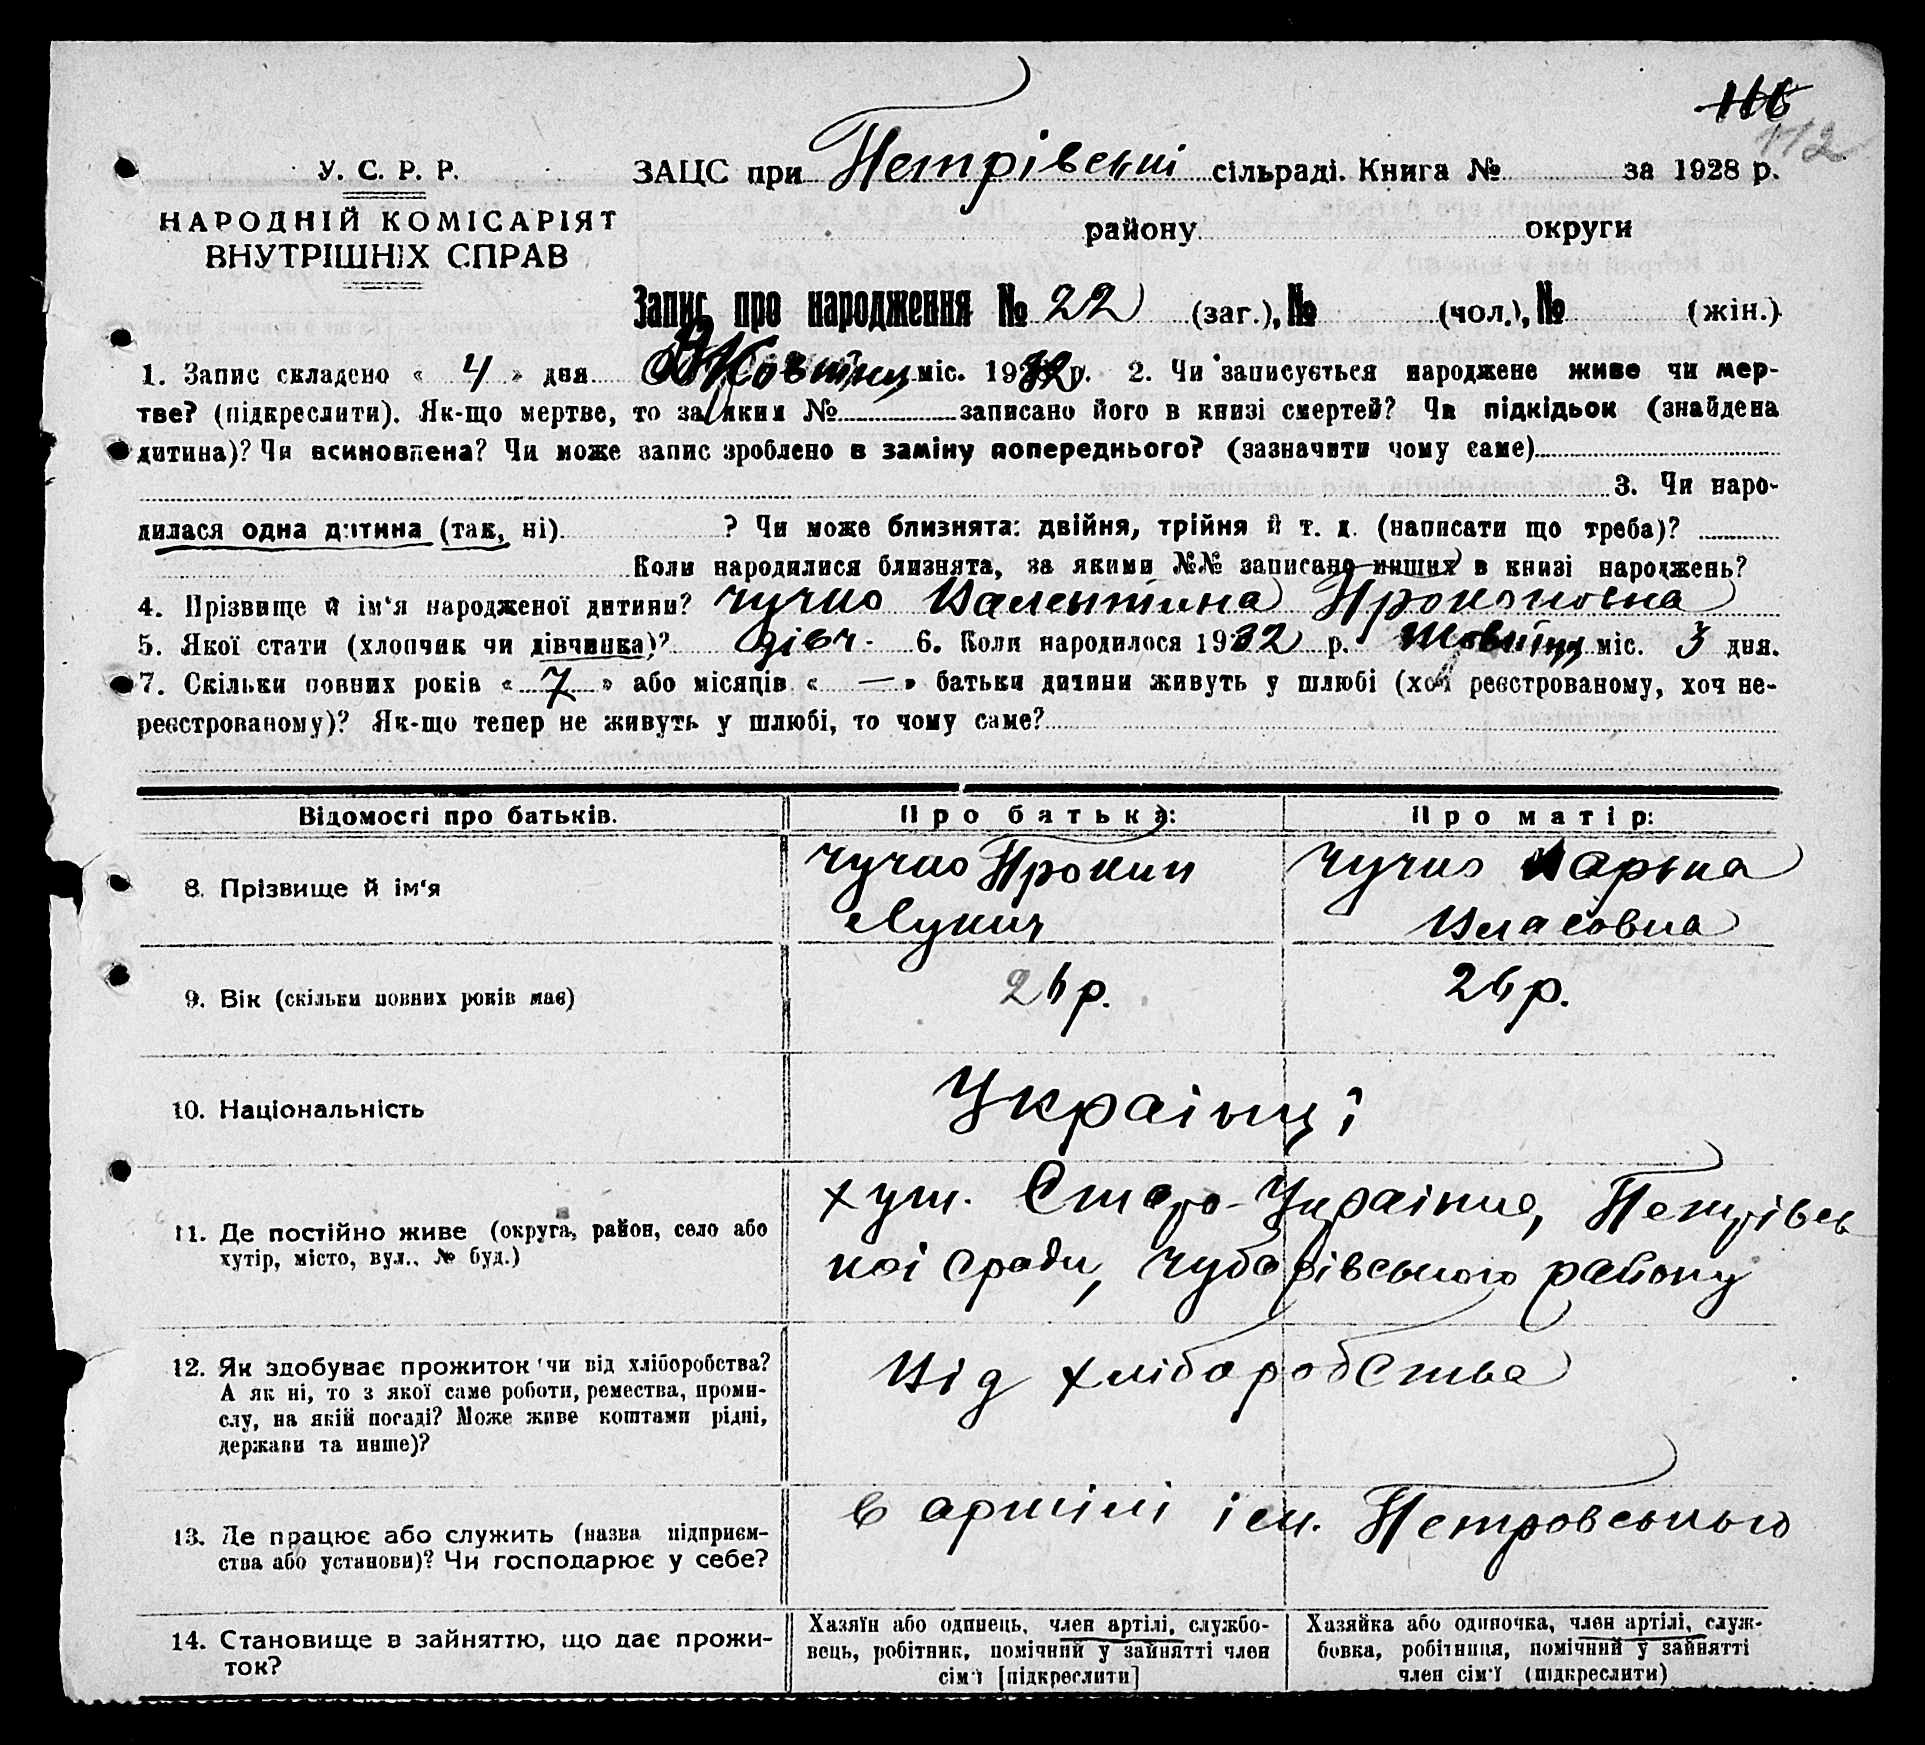 116
112
У. С. Р. Р.
НАРОДНІЙ КОМІСАРІЯТ
ВНУТРІШНІХ СПРАВ
ЗАЦС при Петрівські сільраді. Книга № за 1928 р.
району округи
Запис про народження № 22 (заг.), № (чол.), № (жін.)
1. Запис складено « 4 » дня Жовтня міс. 1932 р. 2. Чи записується народжене живе чи мер-
тве? (підкреслити). Як-що мертве, то за яким № записано його в книзі смертей? Чи підкідьок (знайдена
дитина)? Чи всиновлена? Чи може запис зроблено в заміну попереднього? (зазначити чому саме)
3. Чи наро-
дилася одна дитина (так, ні). ? Чи може близнята: двійня, трійня й т. д. (написати що треба)?
Коли народилися близнята, за якими №№ записано инших в книзі народжень?
4. Прізвище й ім'я народженої дитини? Чучко Валентина Прокоповна
5. Якої стати (хлопчик чи дівчинка)? дівч- 6. Коли народилося 1932 р. Жовтня міс. 3 дня.
7. Скільки повних років « 7 » або місяців « — » батьки дитини живуть у шлюбі (хоч реєстрованому, хоч не-
реєстрованому)? Як-що тепер не живуть у шлюбі, то чому саме?
Відомості про батьків.
Про батька:
Про матір:
8. Прізвище й ім'я
Чучко Прокип
Лукич
Чучко Марьна
Власовна
9. Вік (скільки повних років має)
26 р.
26 р.
10. Національність
Українці
11. Де постійно живе (округа, район, село або
хутір, місто, вул., № буд.)
хут. Старо-Українка, Петрівсь
кої с ради, Чубарівського району
12. Як здобуває прожиток чи від хліборобства?
А як ні, то з якої саме роботи, ремества, проми-
слу, на якій посаді? Може живе коштами рідні,
держави та инше)?
Від хліборобства
13. Де працює або служить (назва підприєм-
ства або установи)? Чи господарює у себе?
в артілі ім. Петровського
14. Становище в зайняттю, що дає прожи-
ток?
Хазяїн або одинець, член артілі, службо-
вець, робітник, помічний у зайнятті член
сім'ї [підкреслити]
Хазяйка або одиночка, член артілі, служ-
бовка, робітниця, помічний у зайнятті
член сім'ї (підкреслити)